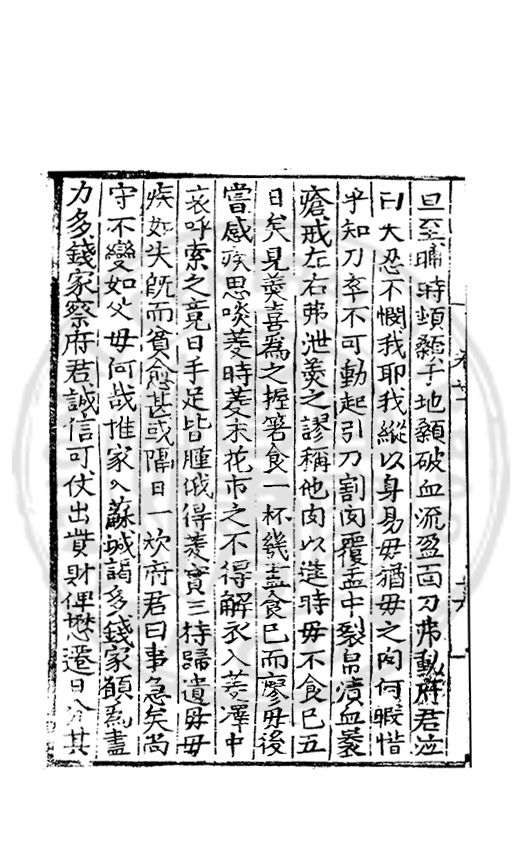 旦至晡時頓顙于地顙破血流盈面刀弗動府君泣
曰天忍不憫我耶我縱以身易毋猶毋之肉何暇惜
乎知刀卒不可動起引刀割肉覆盂中裂帛漬血裹
瘡戒左右弗泄羹之謬稱他肉以進時毋不食已五
日矣見羹喜為之握箸食一杯幾盡食已而廖毋後
嘗感疾思啖菱時菱未花市之不得解衣入菱澤中
哀呼索之竟日手足皆腫俄得菱實三持歸遺毋毋
疾如失既而貧愈甚或隔日一炊府君曰事急矣尚
守不變如父毋何哉惟家入蘇城謁多錢家願為盡
力多錢家察府君誠信可仗出貲財俾懋遷日分其